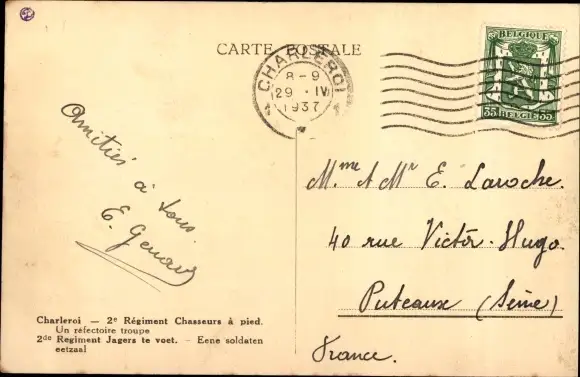 CARTE POSTALE
CHARLEROI
8-9
29 · IV
1937
BELGIQUE
35 BELGIE 35
Amitiés
à tous.
E.
Mme & Mr E. Laroche.
40 rue Victor-Hugo
Puteaux (Seine)
France.
Charleroi — 2e Régiment Chasseurs à pied.
Un réfectoire troupe
2de Regiment Jagers te voet. - Eene soldaten
eetzaal